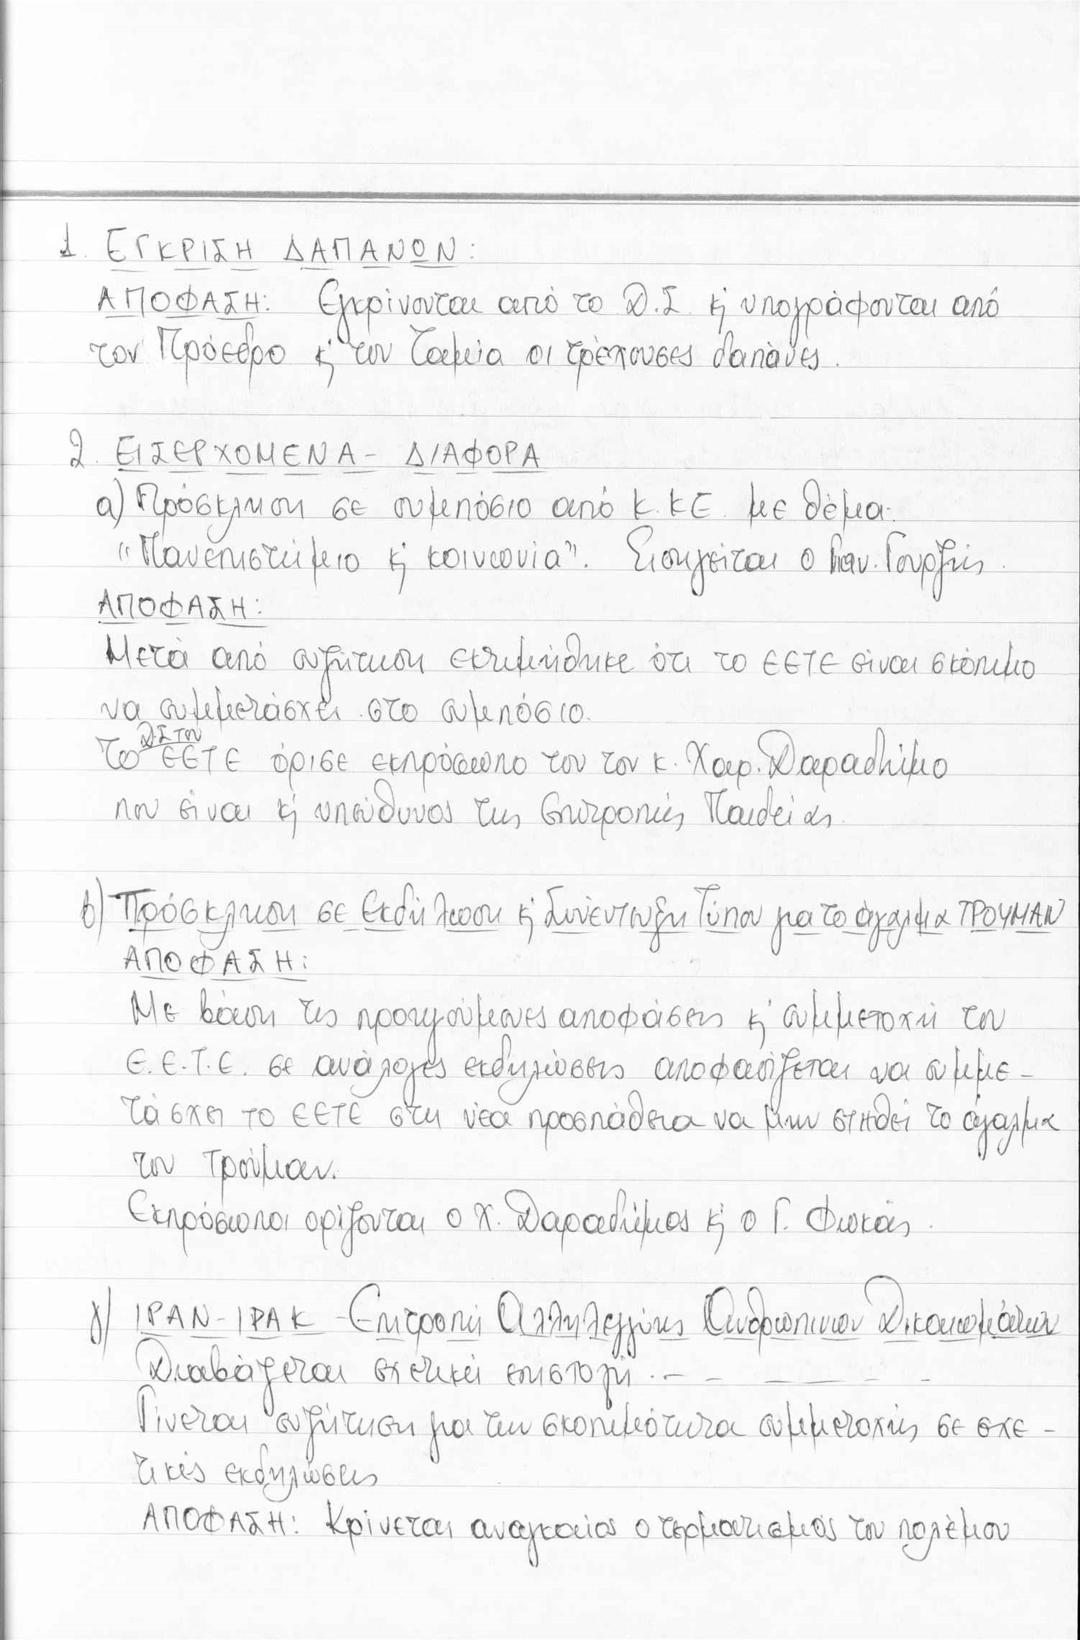 1. ΕΓΚΡΙΣΗ ΔΑΠΑΝΩΝ:
ΑΠΟΦΑΣΗ: Εγκρίνονται από το Δ.Σ. κ' υπογράφονται από
τον Πρόεδρο κ' τον Ταμεία οι τρέχουσες δαπάνες.
2. ΕΙΣΕΡΧΟΜΕΝΑ - ΔΙΑΦΟΡΑ
α) Πρόσκληση σε συμπόσιο από Κ.ΚΕ. με θέμα:
"Πανεπιστήμιο κ' κοινωνία". Εισηγείται ο Παν. Γουρζής.
ΑΠΟΦΑΣΗ:
Μετά από συζήτηση εκτιμήθηκε ότι το ΕΕΤΕ είναι σκόπιμο
να συμμετάσχει στο συμπόσιο.
Το Δ.Σ του ΕΕΤΕ όρισε εκπρόσωπο του τον κ. Χαρ. Δαραδήμο
που είναι κ' υπεύθυνος της Επιτροπής Παιδείας.
β) Πρόσκληση σε Εκδήλωση κ' Συνέντευξη Τύπου για το άγαλμα ΤΡΟΥΜΑΝ
ΑΠΟΦΑΣΗ:
Με βάση τις προηγούμενες αποφάσεις κ' συμμετοχή του
Ε.Ε.Τ.Ε. σε ανάλογες εκδηλώσεις αποφασίζεται να συμμε-
τάσχει το ΕΕΤΕ στη νέα προσπάθεια να μην στηθεί το άγαλμα
του Τρούμαν.
Εκπρόσωποι ορίζονται ο Χ. Δαραδήμος κ' ο Γ. Φωκάς.
γ) ΙΡΑΝ-ΙΡΑΚ - Επιτροπή Αλληλεγγύης Ανθρωπινων Δικαιωμάτων
Διαβάζεται σχετική επιστολή.
Γίνεται συζήτηση για την σκοπιμότητα συμμετοχής σε σχε-
τικές εκδηλώσεις
ΑΠΟΦΑΣΗ: Κρίνεται αναγκαίος ο τερματισμός του πολέμου